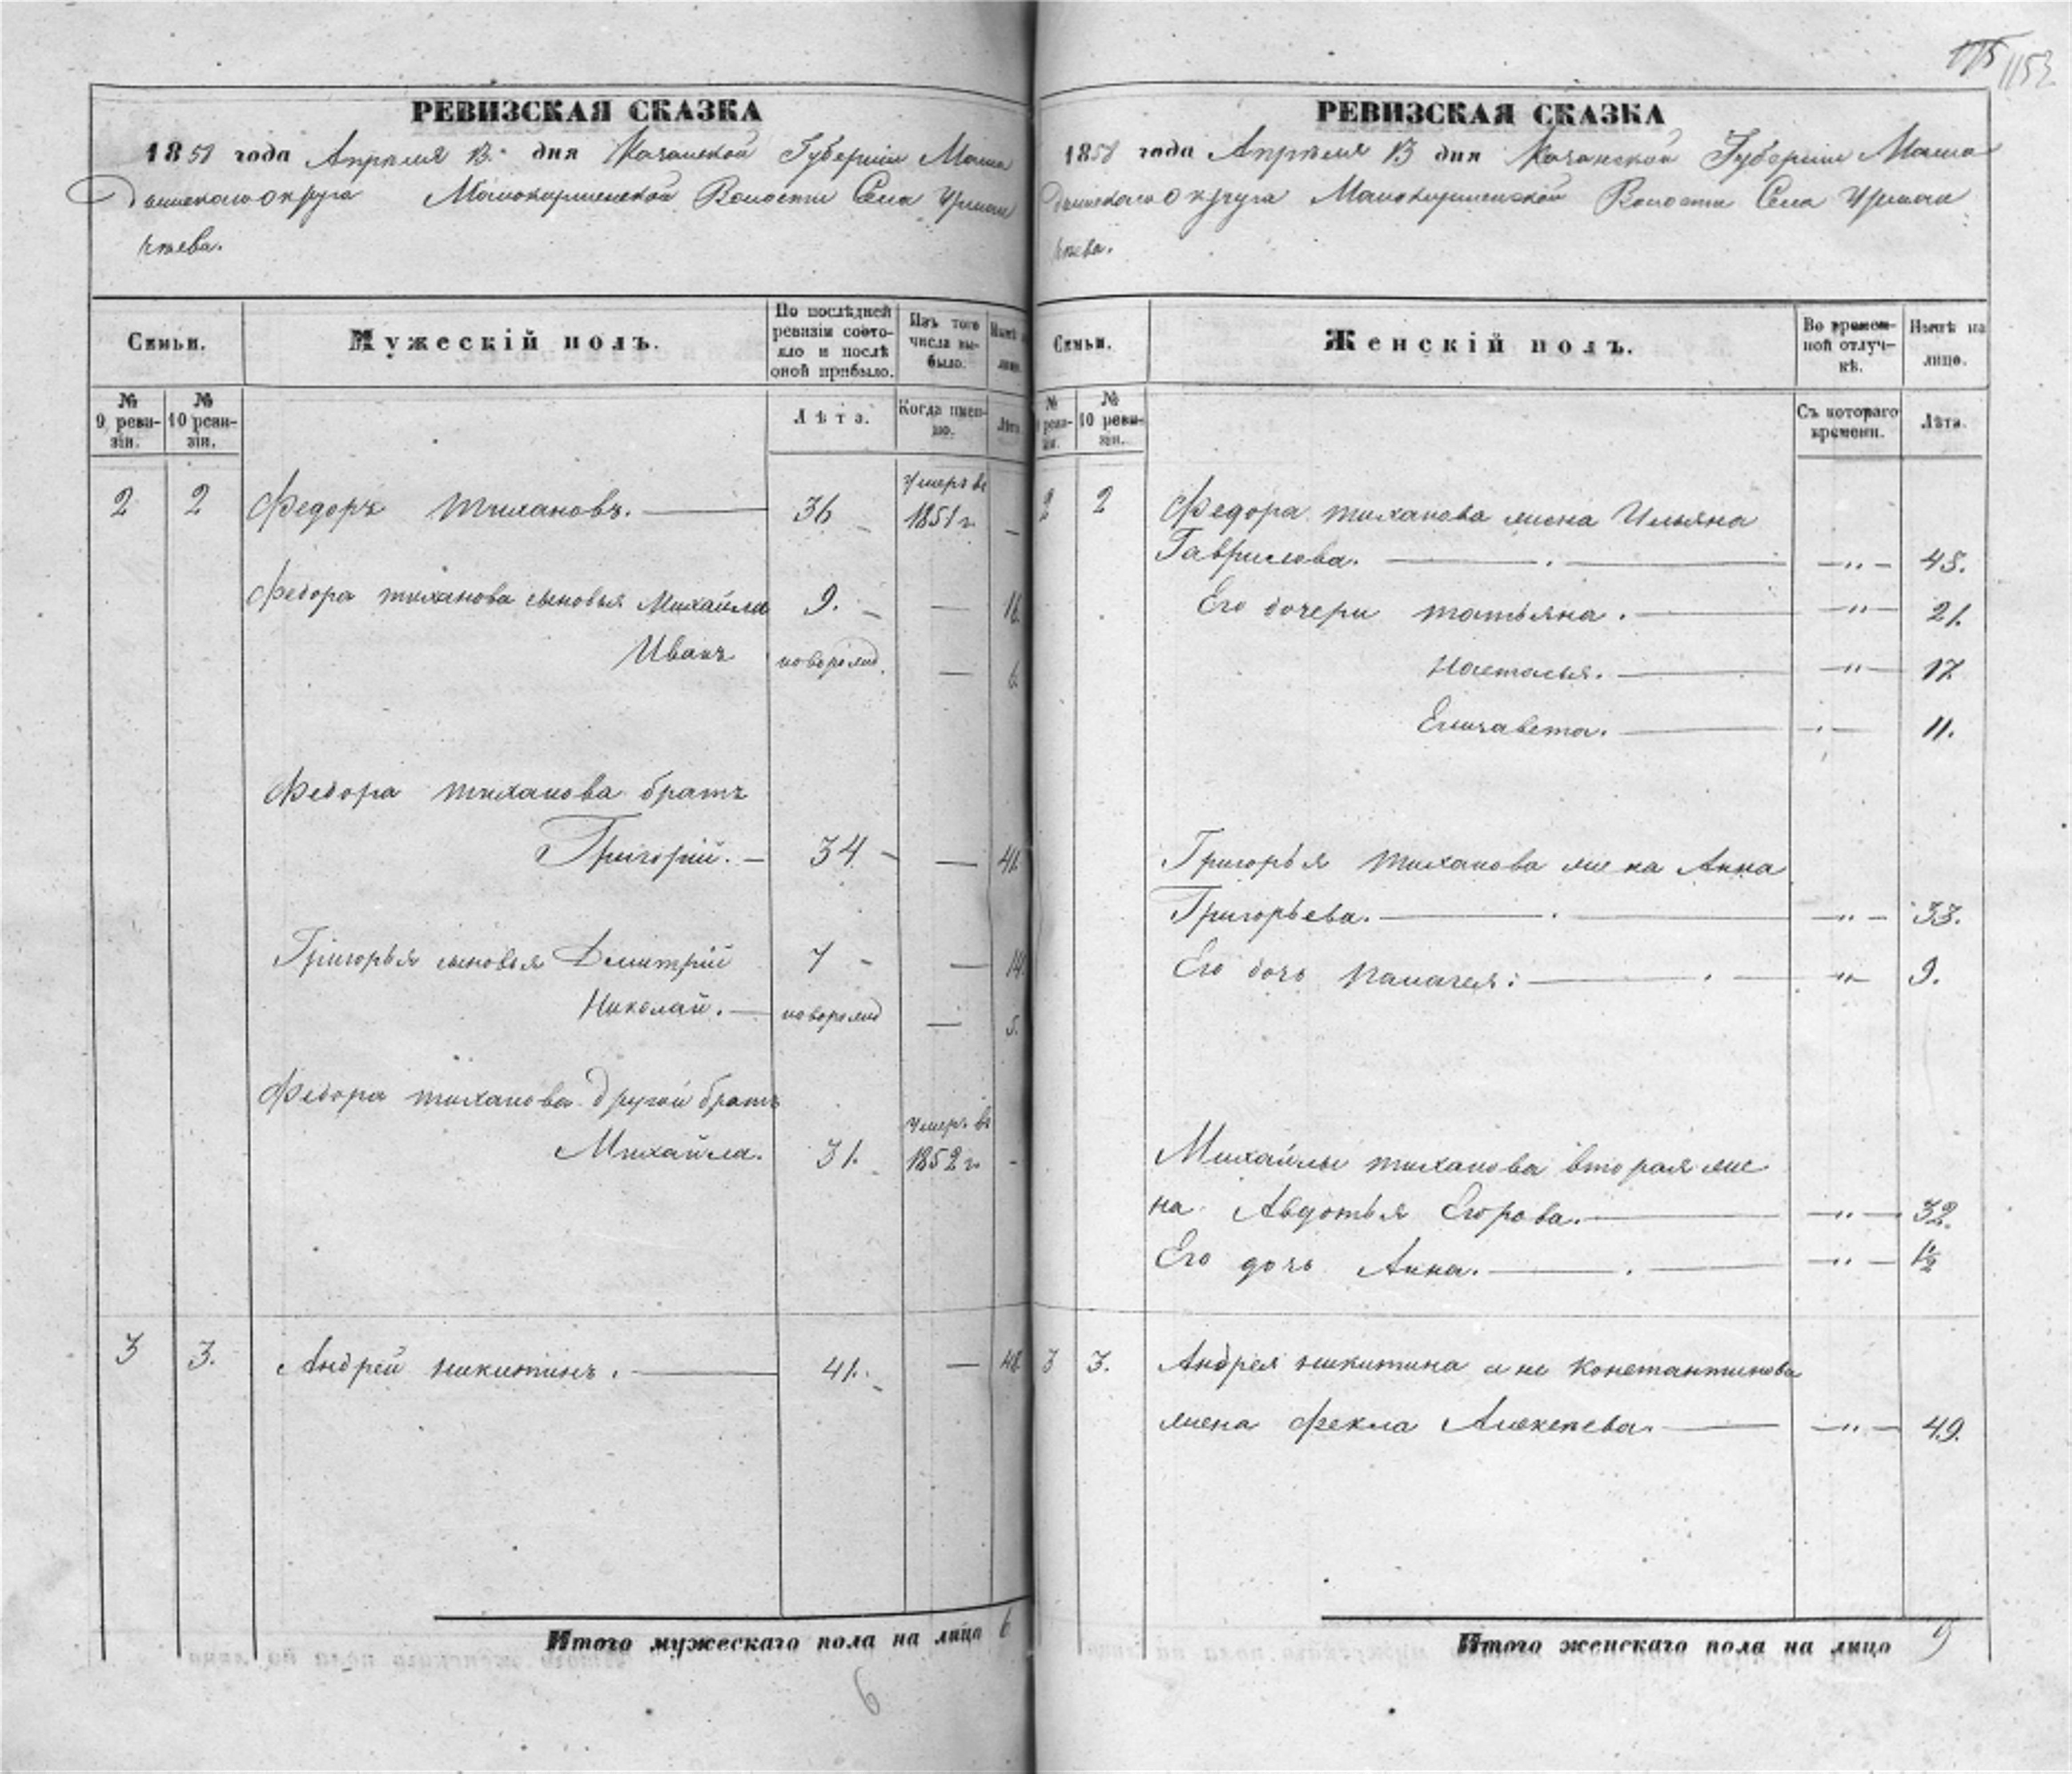 175
1153
РЕВИЗСКАЯ СКАЗКА
1858 года Апрѣля 13 дня Казанской Губерніи Мама
дышскаго округа Мамокирменской Волости Села Урман
чѣева.
Семьи.
Мужескій полъ.
По послѣдней
ревизіи состо-
яло и послѣ
оной прибыло.
Изъ того
числа вы-
было.
Нынѣ
лицо.
№
9 реви-
зіи.
№
10 реви-
зіи.
Лѣта.
Когда имен-
но.
Лѣта.
2 2 Федоръ тихановъ. 36 Умеръ въ
1851 г.
Федора тиханова сыновья Михайла 9. 16.
Иванъ новорожд. 6.
Федора тиханова братъ
Григорій. 34. 41.
Григорья сыновья Дмитрій 7 14.
Николай. новорожд 5.
Федора тиханова другой братъ
Михайла. 31. Умеръ въ
1852 г.
3 3. Андрей никитинъ. 41. 48
Итого мужескаго пола на лицо 6
6
РЕВИЗСКАЯ СКАЗКА
1858 года Апрѣля 13 дня Казанской Губерніи Мама
дышскаго округа Мамокирменской Волости Села Урман
чѣева.
Семьи.
Женскій полъ.
Во времен-
ной отлуч-
кѣ.
Нынѣ на
лицо.
№
9 реви-
зіи.
№
10 реви-
зіи.
Съ котораго
времени.
Лѣта.
2 2 Федора тиханова жена Ульяна
Гаврилова. 45.
Его дочери татьяна. 21.
Наталья. 17
Елизавета. 11.
Григорья тиханова жена Анна
Григорьева. 33.
Его дочь Палагея: 9.
Михайлы тиханова вторая же
на Авдотья Егорова. 32.
Его дочь Анна. 1½
3 3. Андрея никитина а не Константинова
жена Фекла Алексѣева. 49.
Итого женскаго пола на лицо 9